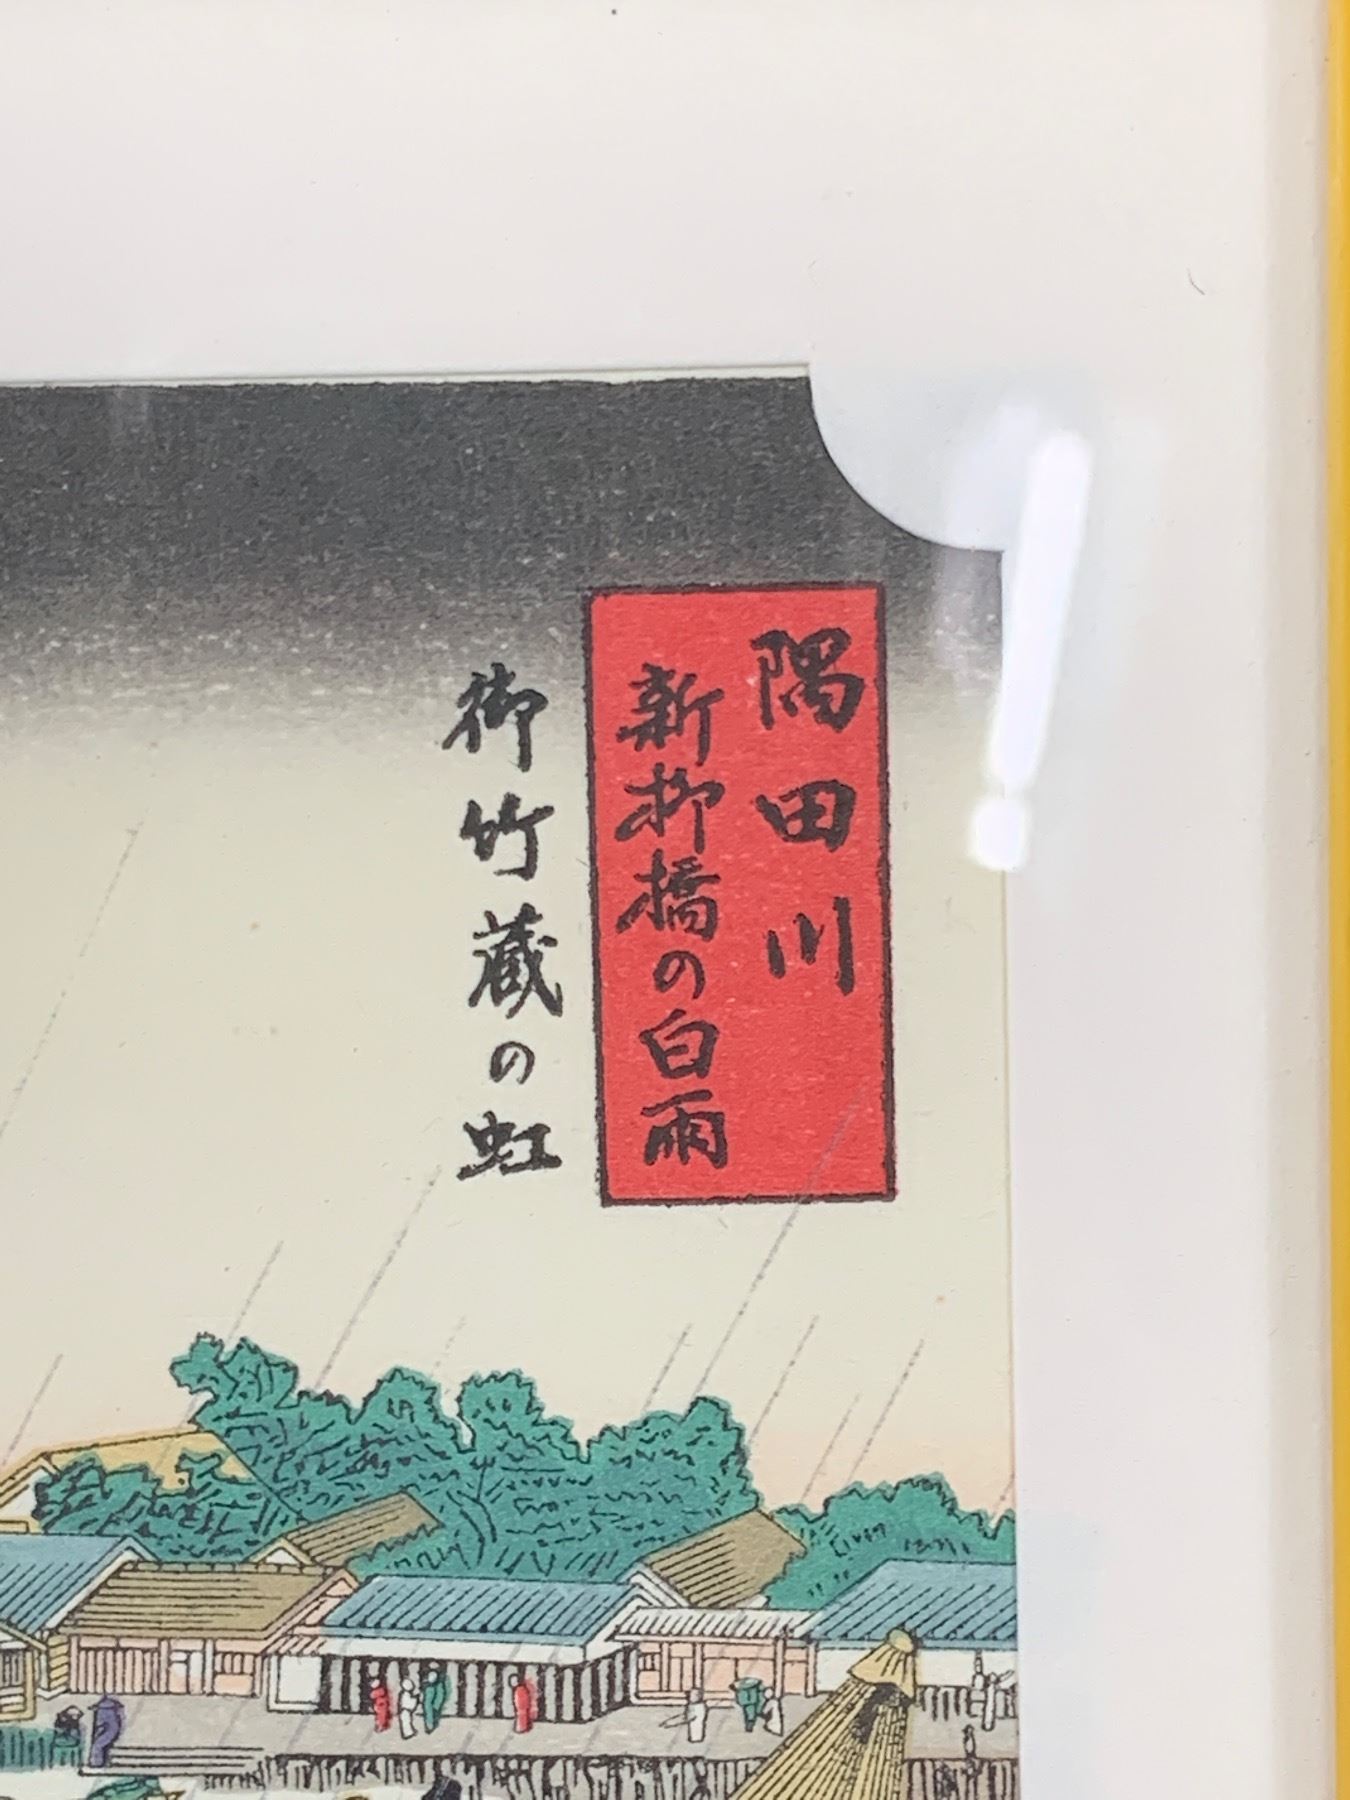 隅田川
新柳橋の白雨
御竹蔵の虹